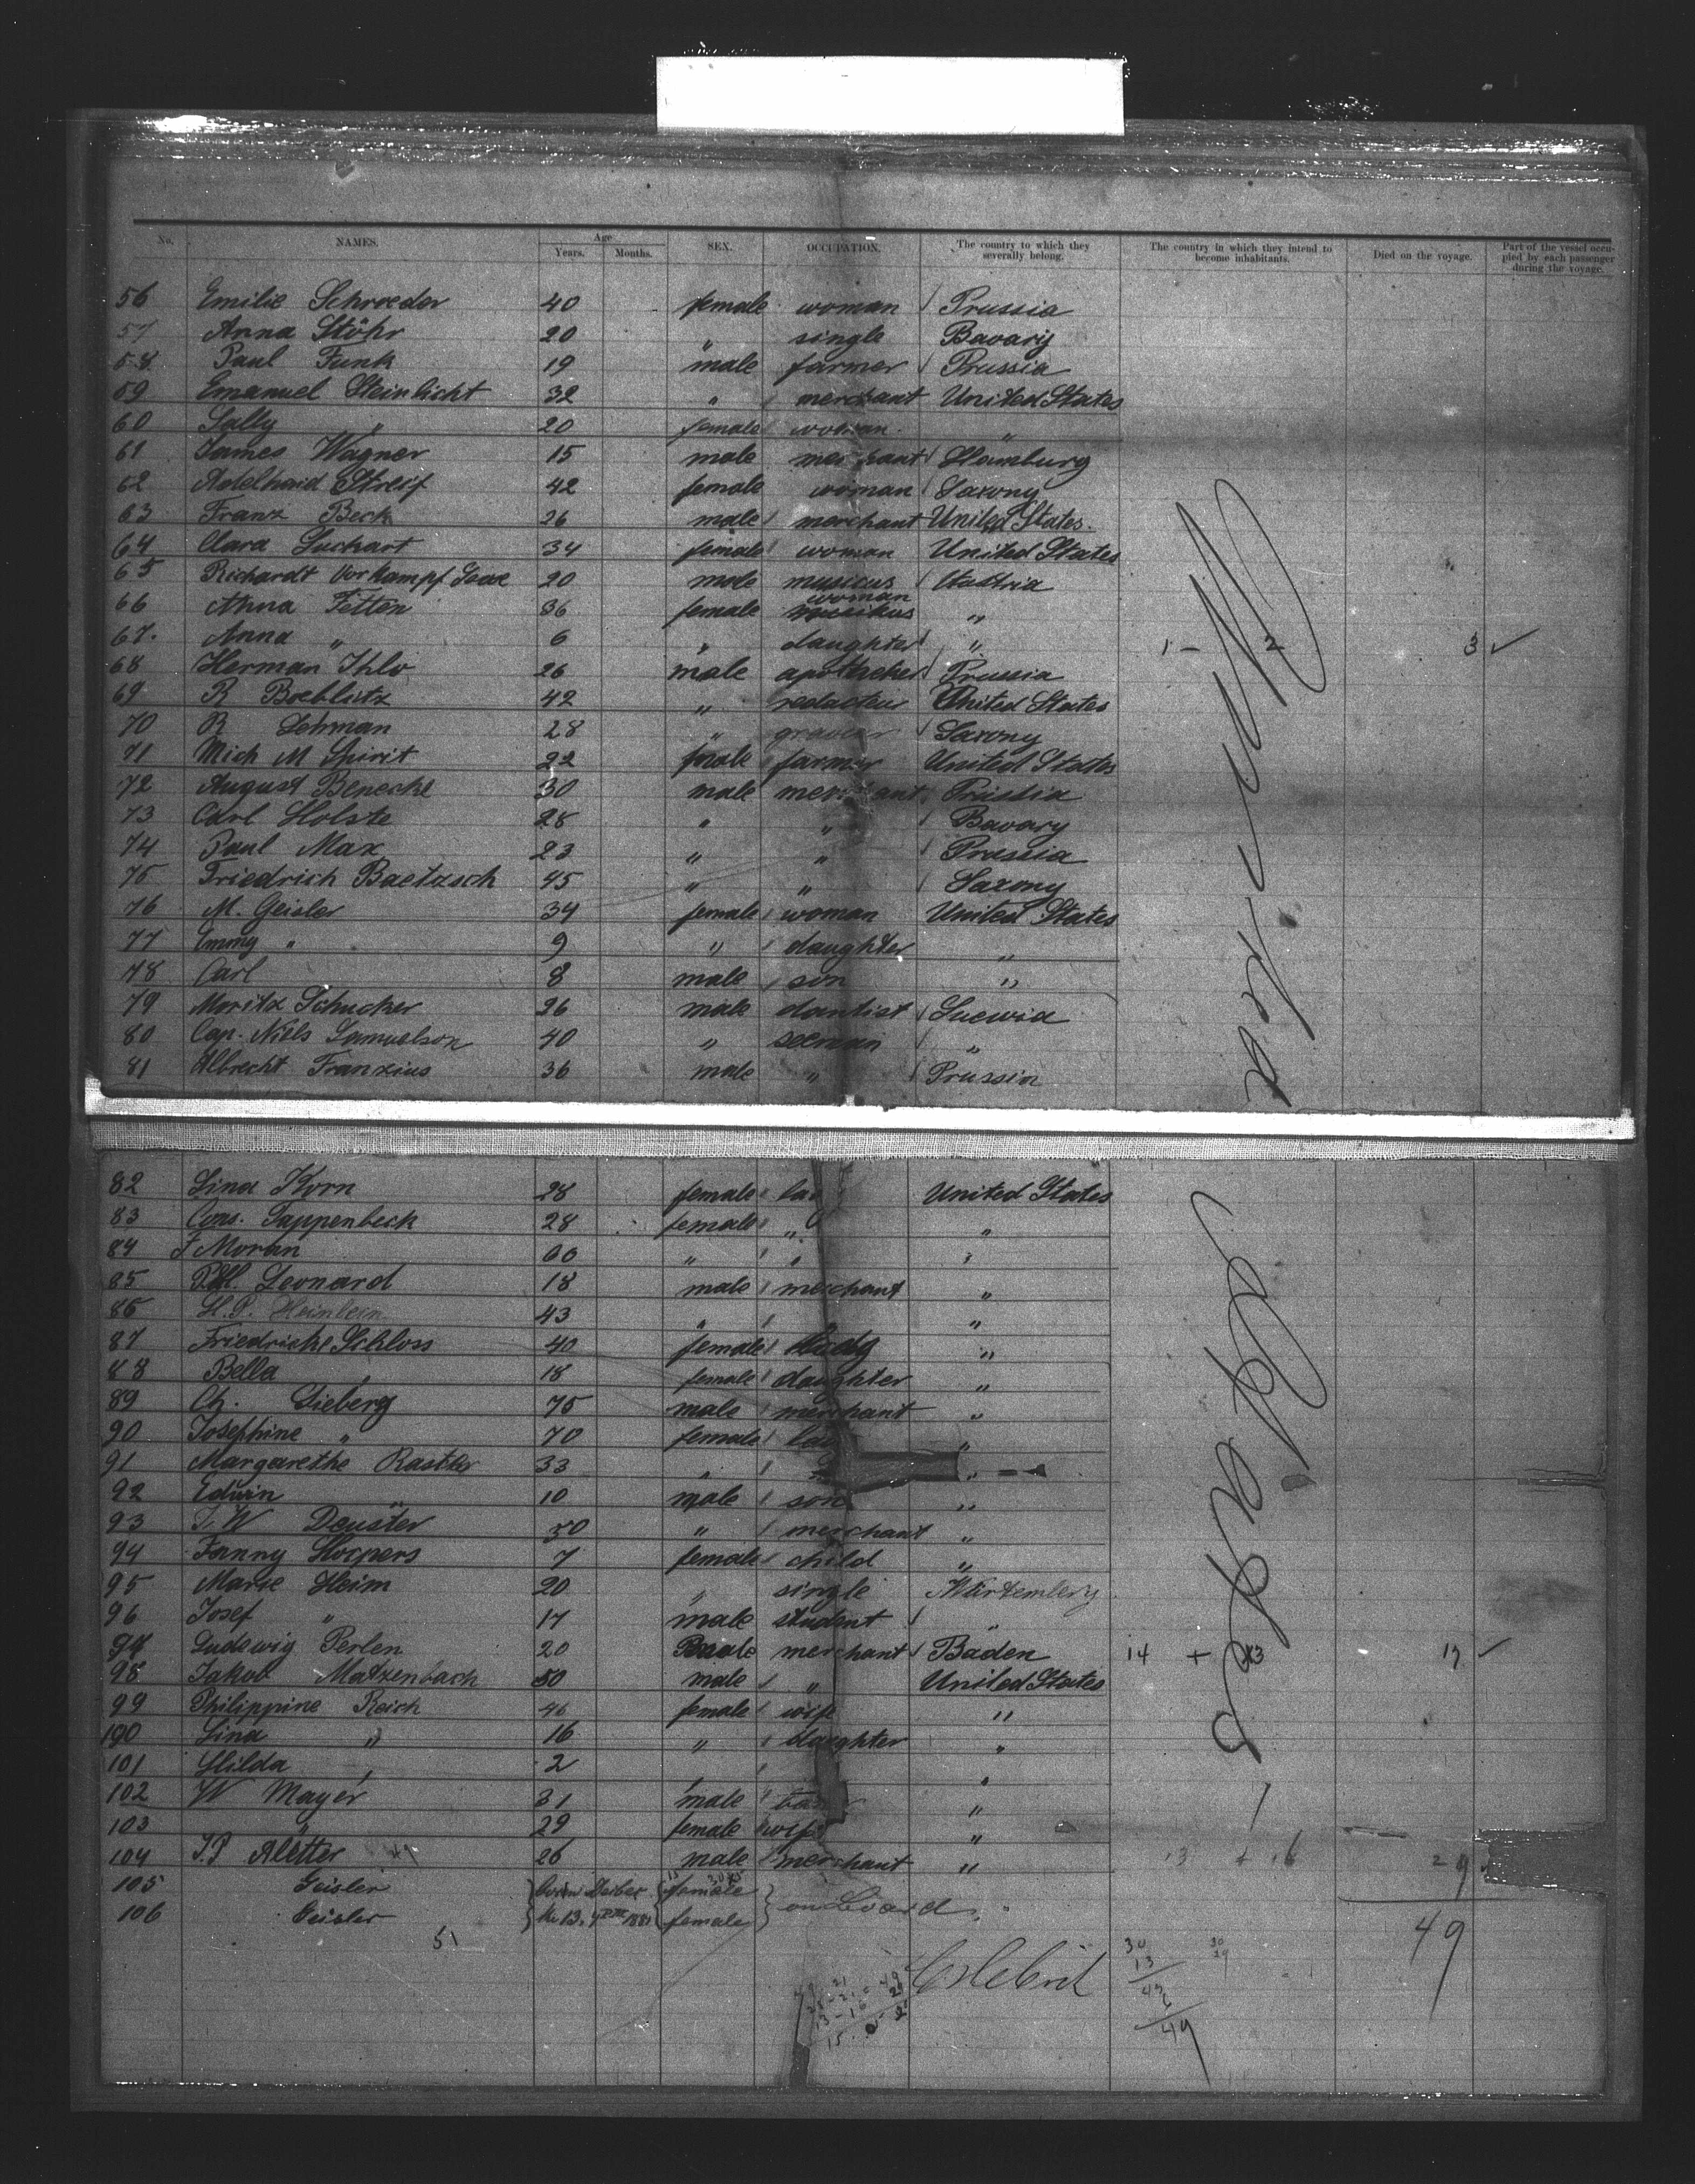 No. NAMES. Age Years. Months. SEX. OCCUPATION. The country to which they severally belong. The country in which they intend to become inhabitants. Died on the voyage. Part of the vessel occupied by each passenger during the voyage.
56 Emilie Schroeder 40 female woman Prussia
57 Anna Stöhr 20 " single Bavary
58 Paul Funk 19 male farmer Prussia
59 Emanuel Steinlicht 32 " merchant United States
60 Sally " 20 female woman "
61 James Wagner 15 male merchant Hamburg
62 Adelhaid Streif 42 female woman Saxony
63 Franz Beck 26 male merchant United States
64 Clara Luckart 34 female woman United States
65 Richardt Vorkampf 20 male musicus
66 Anna Fetten 36 female woman "
67 Anna " 6 " daughter " 1 - 2 3 ✓
68 Herman Ihlo 26 male apotheker Prussia
69 R Boeblitz 42 " redacteur United States
70 R Lehman 28 " Saxony
71 Mich M Spirit 22 male farmer United States
72 August Benecke 30 male merchant Prussia
73 Carl Holste 28 " " Bavary
74 Paul Max 23 " " Prussia
75 Friedrich Baetzsch 45 " " Saxony
76 M. Geisler 34 female woman United States
77 Emmy " 9 " daughter "
78 Carl 8 male son "
79 Moritz Schucher 26 male dantist Suewia
80 Cap. Niels Samuelson 40 " seeman "
81 Albrecht Franzius 36 male " Prussia
82 Lina Korn 28 female United States
83 Cons. Tappenbeck 28 female " "
84 F Moran 60 " " "
85 Leonard 18 male merchant "
86 H.P. Heinlein 43 " "
87 Friedricke Schloss 40 female lady "
88 Bella " 18 female daughter "
89 Ch. Sieberg 75 male merchant "
90 Josephine " 70 female "
91 Margarethe Rastter 33 " "
92 Edwin 10 male son "
93 Deuster 50 " merchant "
94 Fanny Hoepers 7 female child "
95 Marie Heim 20 " single Würtemberg
96 Josef " 17 male student "
97 Ludewig Perlen 20 male merchant Baden 14 + 3 17 ✓
98 Jakob Matzenbach 50 male " United States
99 Philippine Reich 46 female wife "
100 Lina " 16 " daughter "
101 Hilda " 2 " "
102 W Mayer 31 male "
103 " 29 female wife "
104 J.P Aletter 26 male merchant " 13 + 16 29
105 Geisler female
106 Geisler female on board
51
49
30
13
49